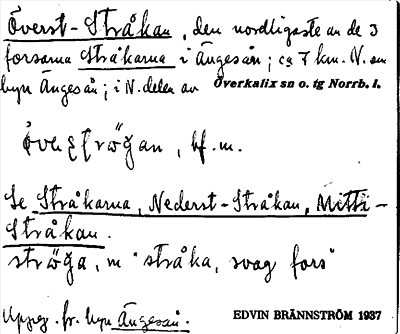 Överst-Stråkan, den nordligaste av de 3
forsarna Stråkarna i Ängesån; ca 7 km. N. om
byn Ängesån; i N. delen av Överkalix sn o. tg Norrb. l.
, bf. m.
Se Stråkarna, Nederst-Stråkan, Mitti-
Stråkan.
m "stråka, svag fors"
Uppg. fr. byn Ängesån.
EDVIN BRÄNNSTRÖM 1937